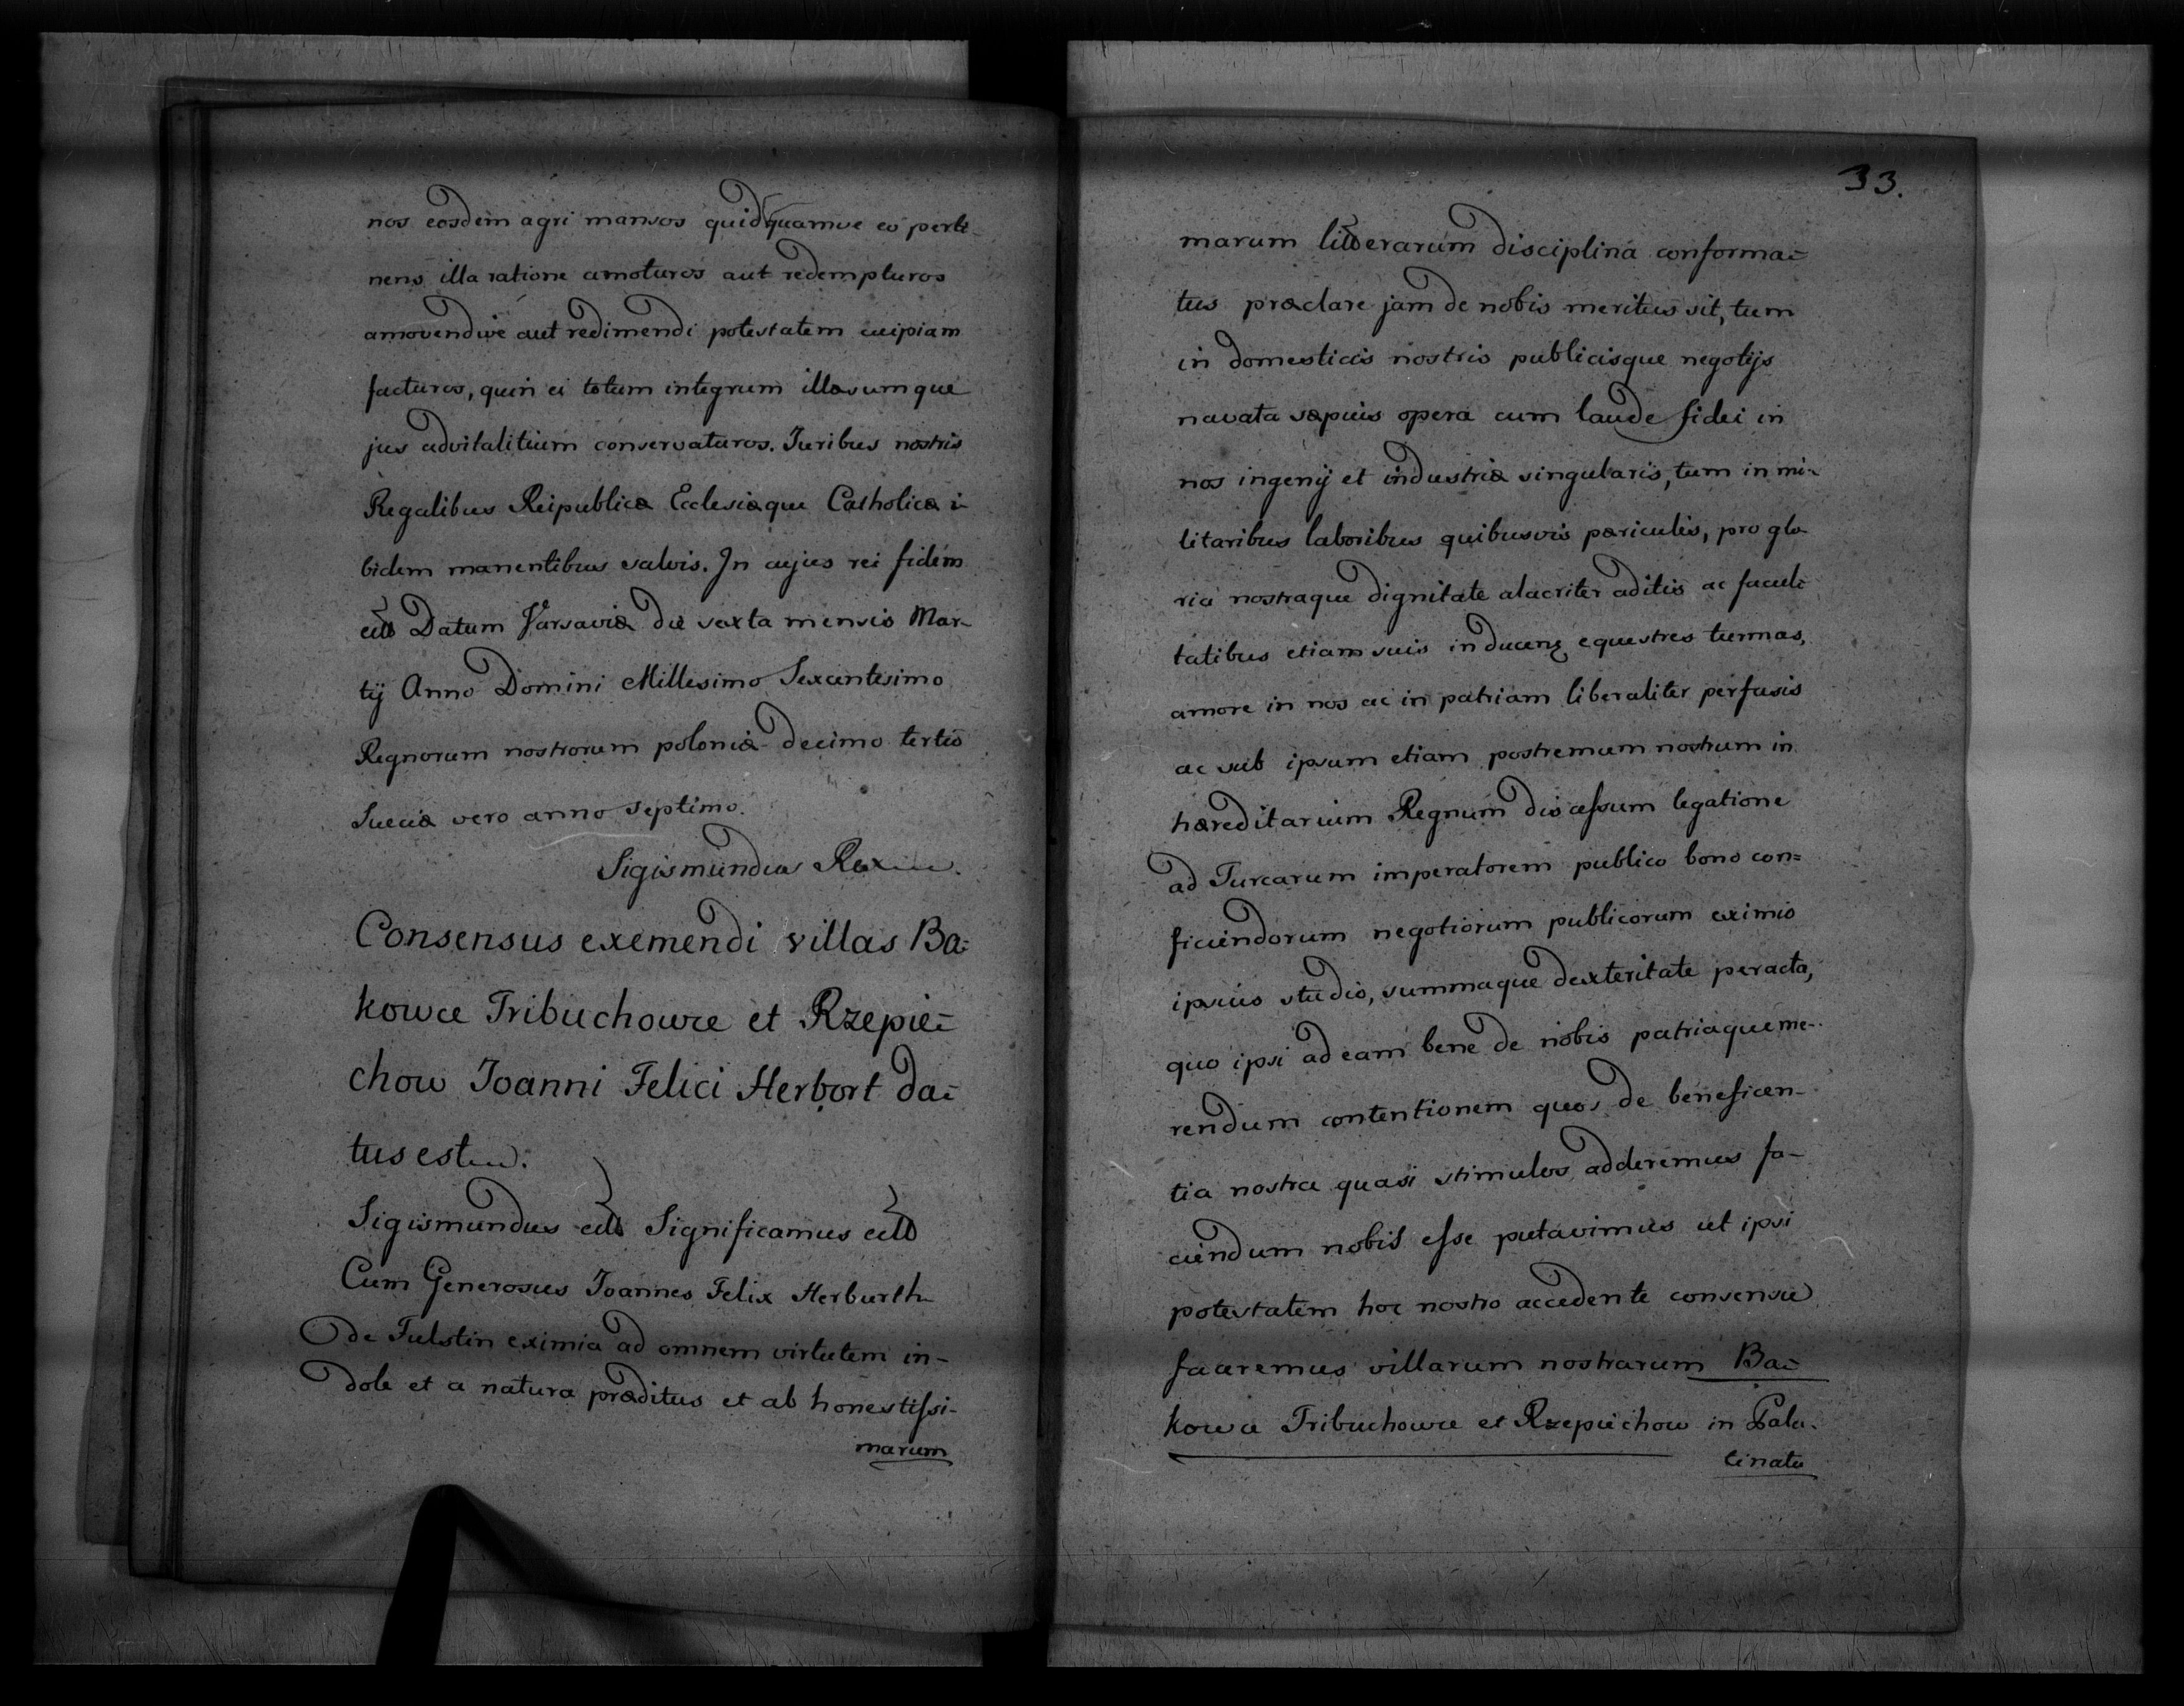 nos eosdem agri mansos quidquamve eo perti-
nens illa ratione amoturos aut redempturos
amovendive aut redimendi potestatem cuipiam
facturos, quin ei totum integrum illæsumque
jus advitalitium conservaturos. Juribus nostris
Regalibus Reipublicæ Ecclesiæque Catholicæ i-
bidem manentibus salvis. In cujus rei fidem
ett Datum Varsaviæ die sexta mensis Mar-
tij Anno Domini Millesimo Sexcentesimo
Regnorum nostrorum poloniæ decimo tertio
Sueciæ vero anno septimo.
Sigismundus Rex
Consensus exemendi villas Ba-
kowce Tribuchowce et Rzepie-
chow Joanni Felici Herbort da-
tus est.
Sigismundus ett Significamus ett
Cum Generosus Joannes Felix Herburth
de Fulstin eximia ad omnem virtutem in-
dole et a natura præditus et ab honestissi-
marum
33.
marum litterarum disciplina conforma-
tus præclare jam de nobis meritus sit, tum
in domesticis nostris publicisque negotijs
navata sæpius opera cum laude fidei in
nos ingenij et industriæ singularis, tum in mi-
litaribus laboribus quibusvis periculis, pro glo
ria nostraque dignitate alacriter aditis ac facul-
tatibus etiam suis in ducenz equestres turmas,
amore in nos ac in patriam liberaliter perfusis
ac sub ipsum etiam postremum nostrum in
hæreditarium Regnum discessum legatione
ad Turcarum imperatorem publico bono con=
ficiendorum negotiorum publicorum eximio
ipsius studio, summaque dexteritate peracta,
quo ipsi ad eam bene de nobis patriaque me-
rendum contentionem quos de beneficen-
tia nostra quasi stimulos adderemus fa-
ciendum nobis esse putavimus ut ipsi
potestatem hoc nostro accedente consensu
faceremus villarum nostrarum Ba-
kowce Tribuchowce et Rzepiechow in Pala-
tinatu